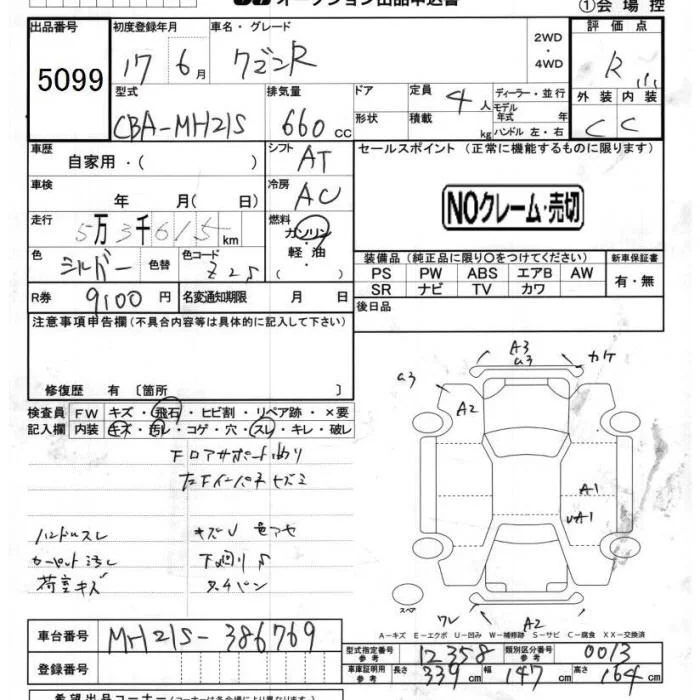 ①会場控
出品番号 初度登録年月 車名・グレード 2WD・4WD 評価点
5099 17年6月 ワゴンR R
型式 排気量 ドア形状 定員 4人 積載 kg ディーラー・並行 モデル年式 年 ハンドル 左・右 外装 内装
CBA-MH21S 660cc C C
車歴 自家用・( ) シフト AT セールスポイント(正常に機能するものに限ります)
車検 年 月( 日) 冷房 AC NOクレーム・売切
走行 5万3千615km 燃料 ガソリン・軽油・( )
色 シルバー 色替 色コード Z2S 装備品(純正品に限り○をつけてください) 新車保証書
PS PW ABS エアB AW 有・無
SR ナビ TV カワ
R券 9100円 名変通知期限 月 日 後日品
注意事項申告欄(不具合内容等は具体的に記入して下さい)
修復歴 有〔箇所 〕
検査員記入欄 FW キズ・飛石・ヒビ割・リペア跡・×要
内装 キズ・汚レ・コゲ・穴・スレ・キレ・破レ
A3
a3 カケ
a3
A2
A1
A1
ハンドルスレ
カーペット汚レ
荷室キズ 
下廻りS
スペア
ワレ A2
A-キズ E-エクボ U-凹み W-補修跡 S-サビ C-腐食 XX-交換済
車台番号 MH21S-386769
型式指定番号 参考 12358 類別区分番号 参考 0013
登録番号
車庫証明用 参考 長さ 339cm 幅 147cm 高さ 164cm